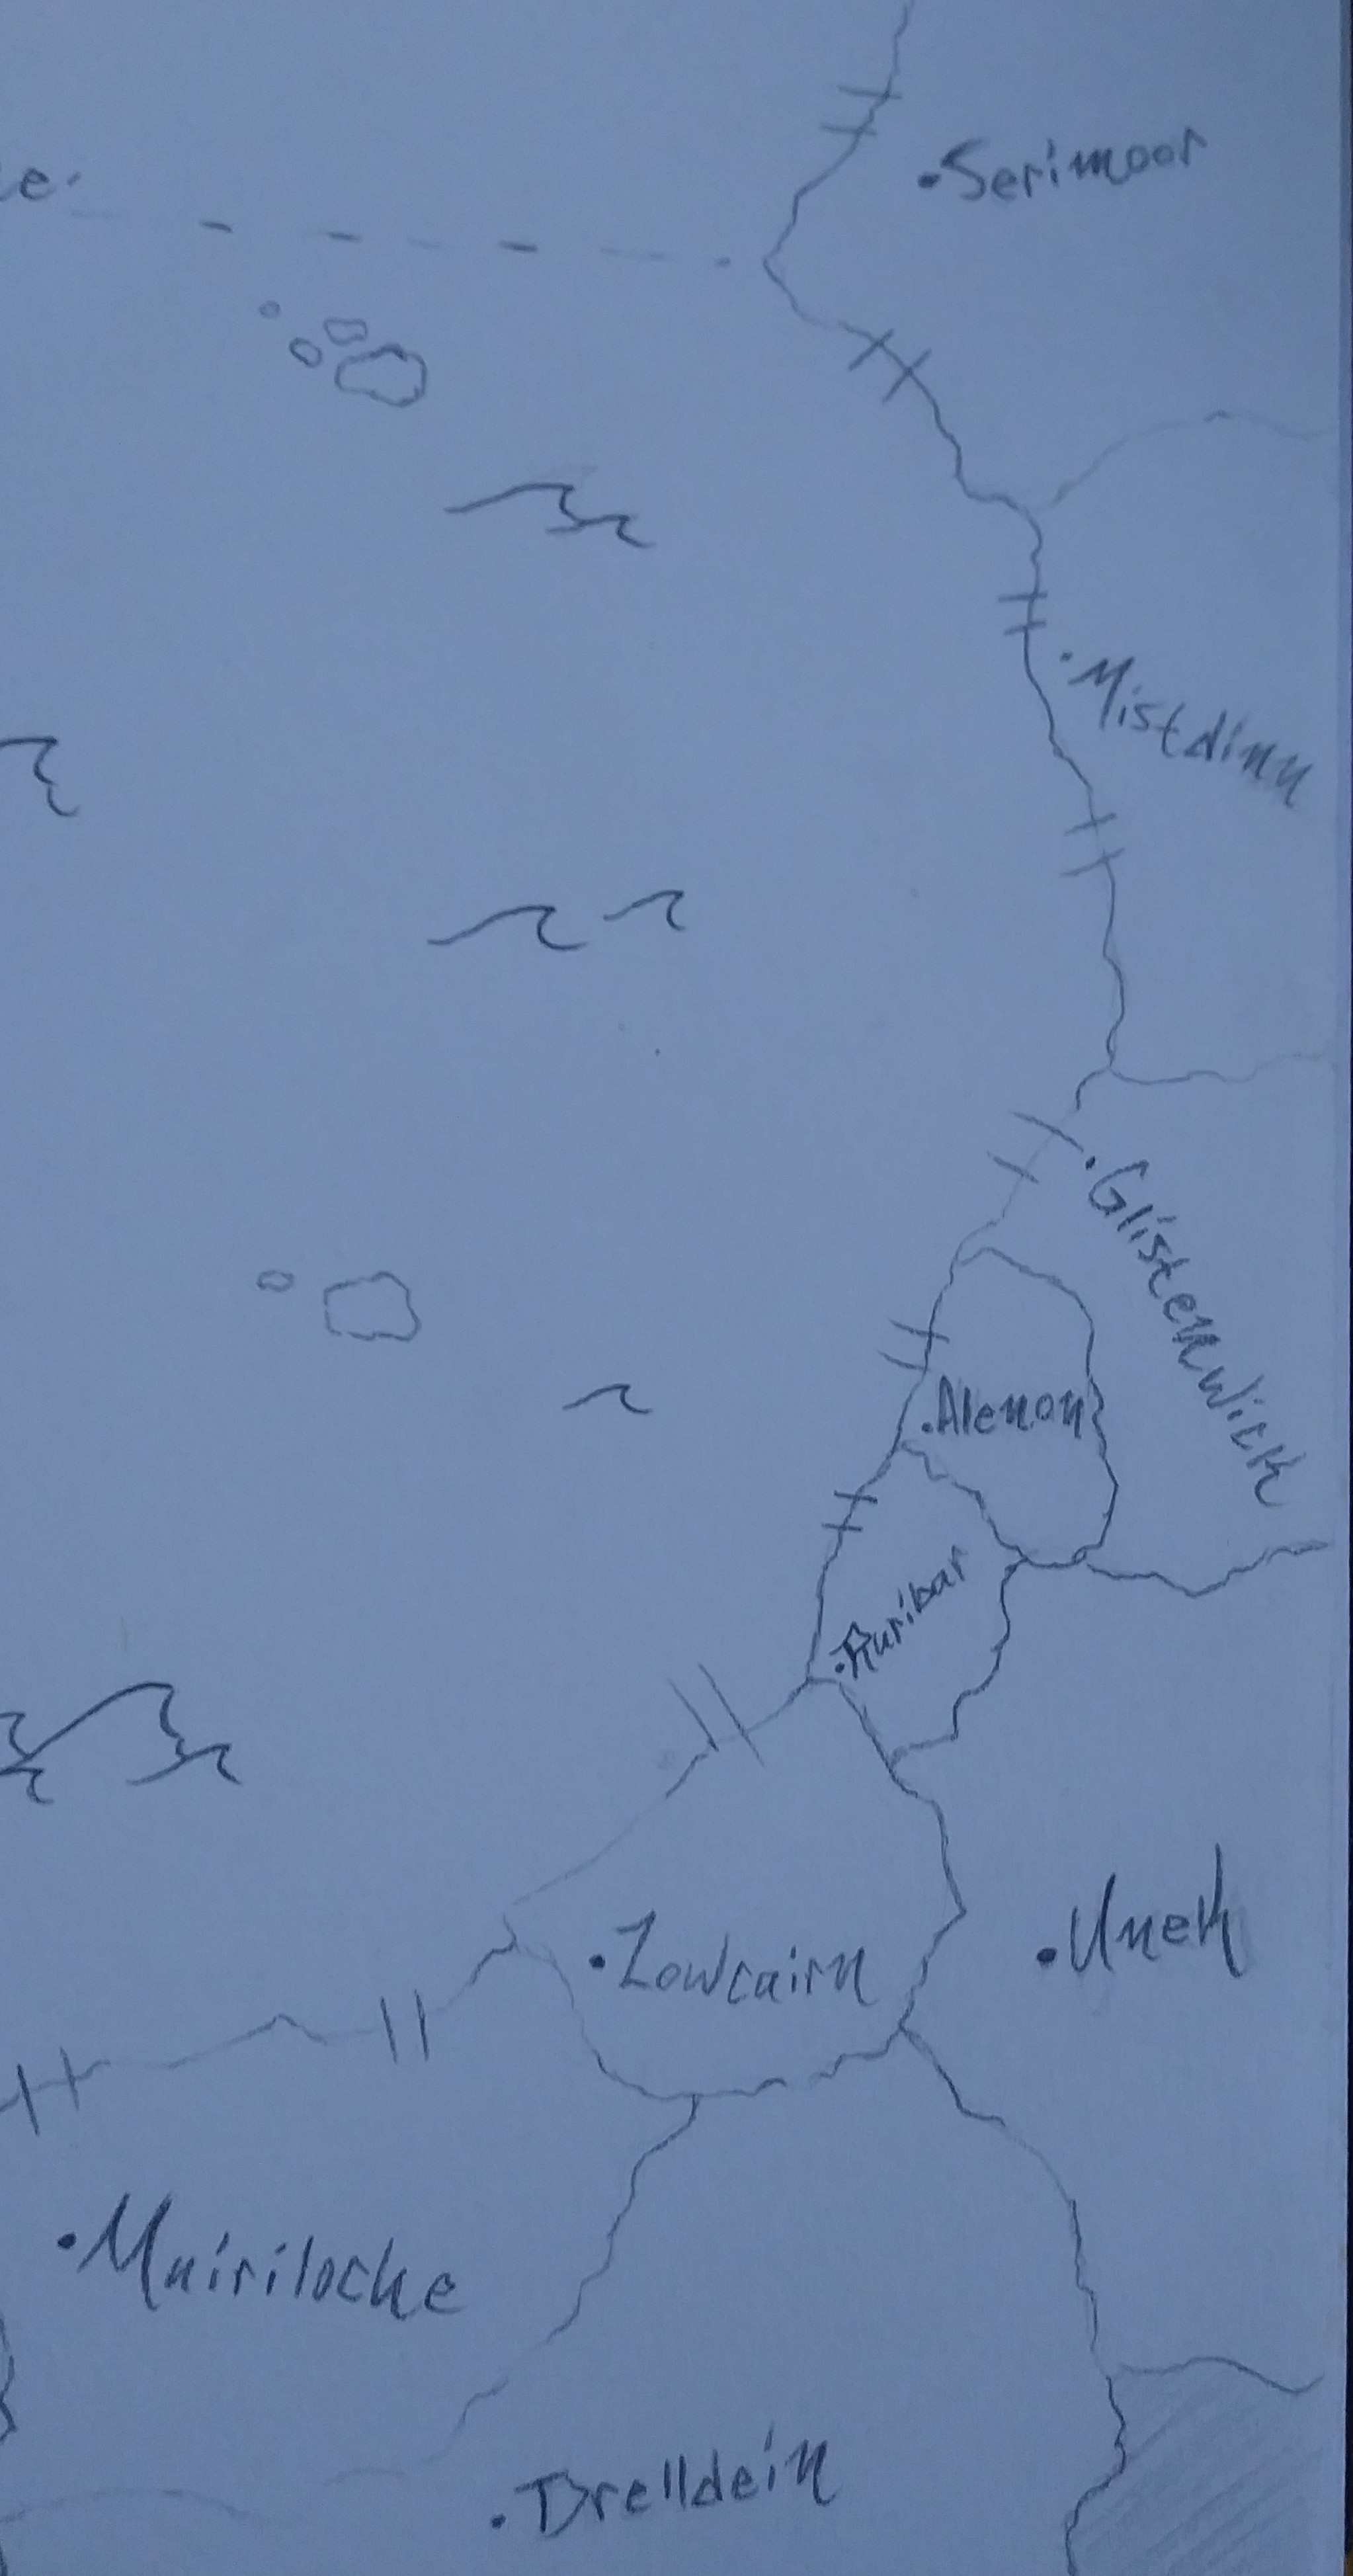 Serimoor
Mistdinn
Glistenwick
Alenon
Auribar
Unek
Lowcairn
Muiriloche
Drelldein